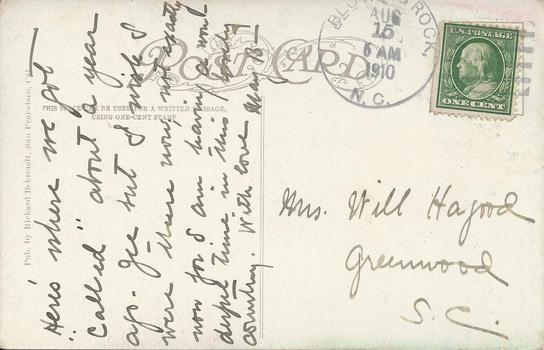 POST CARD
THIS SPACE MAY BE USED FOR A WRITTEN MESSAGE,
USING ONE-CENT STAMP
Pub. by Richard Behrendt, San Francisco, Cal.
BLOWING ROCK
AUG
15
6 AM
1910
N.C.
U.S. POSTAGE
ONE CENT
Here's where we got
"called" about a year
ago. Gee but I wish I
were there now, not
now for I am having a
time in this
country. With love
Mrs. Will Hagood
Greenwood
S.C.